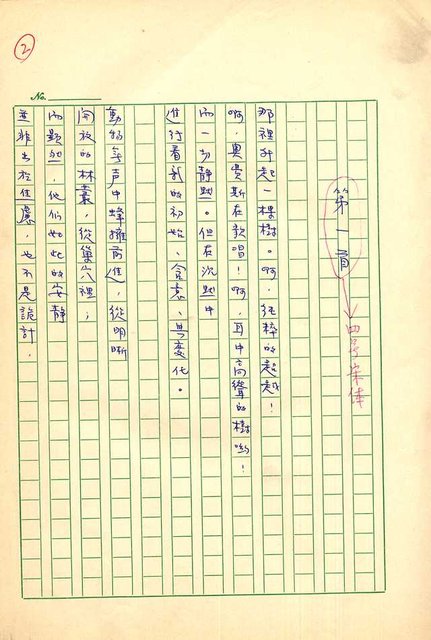 2
No.
第一首
四号宋体
那裡升起一棵樹。啊，純粹的超越！
啊，奧費斯在歌唱！啊，耳中高聳的樹喲！
而一切靜默。但在沈默中
進行着新的初始、含意、與変化。
動物無声中蜂擁前進，從明晰
開放的林藪，從巢穴裡；
而顯然，他們如此的安靜
並非出於焦慮，也不是詭計．